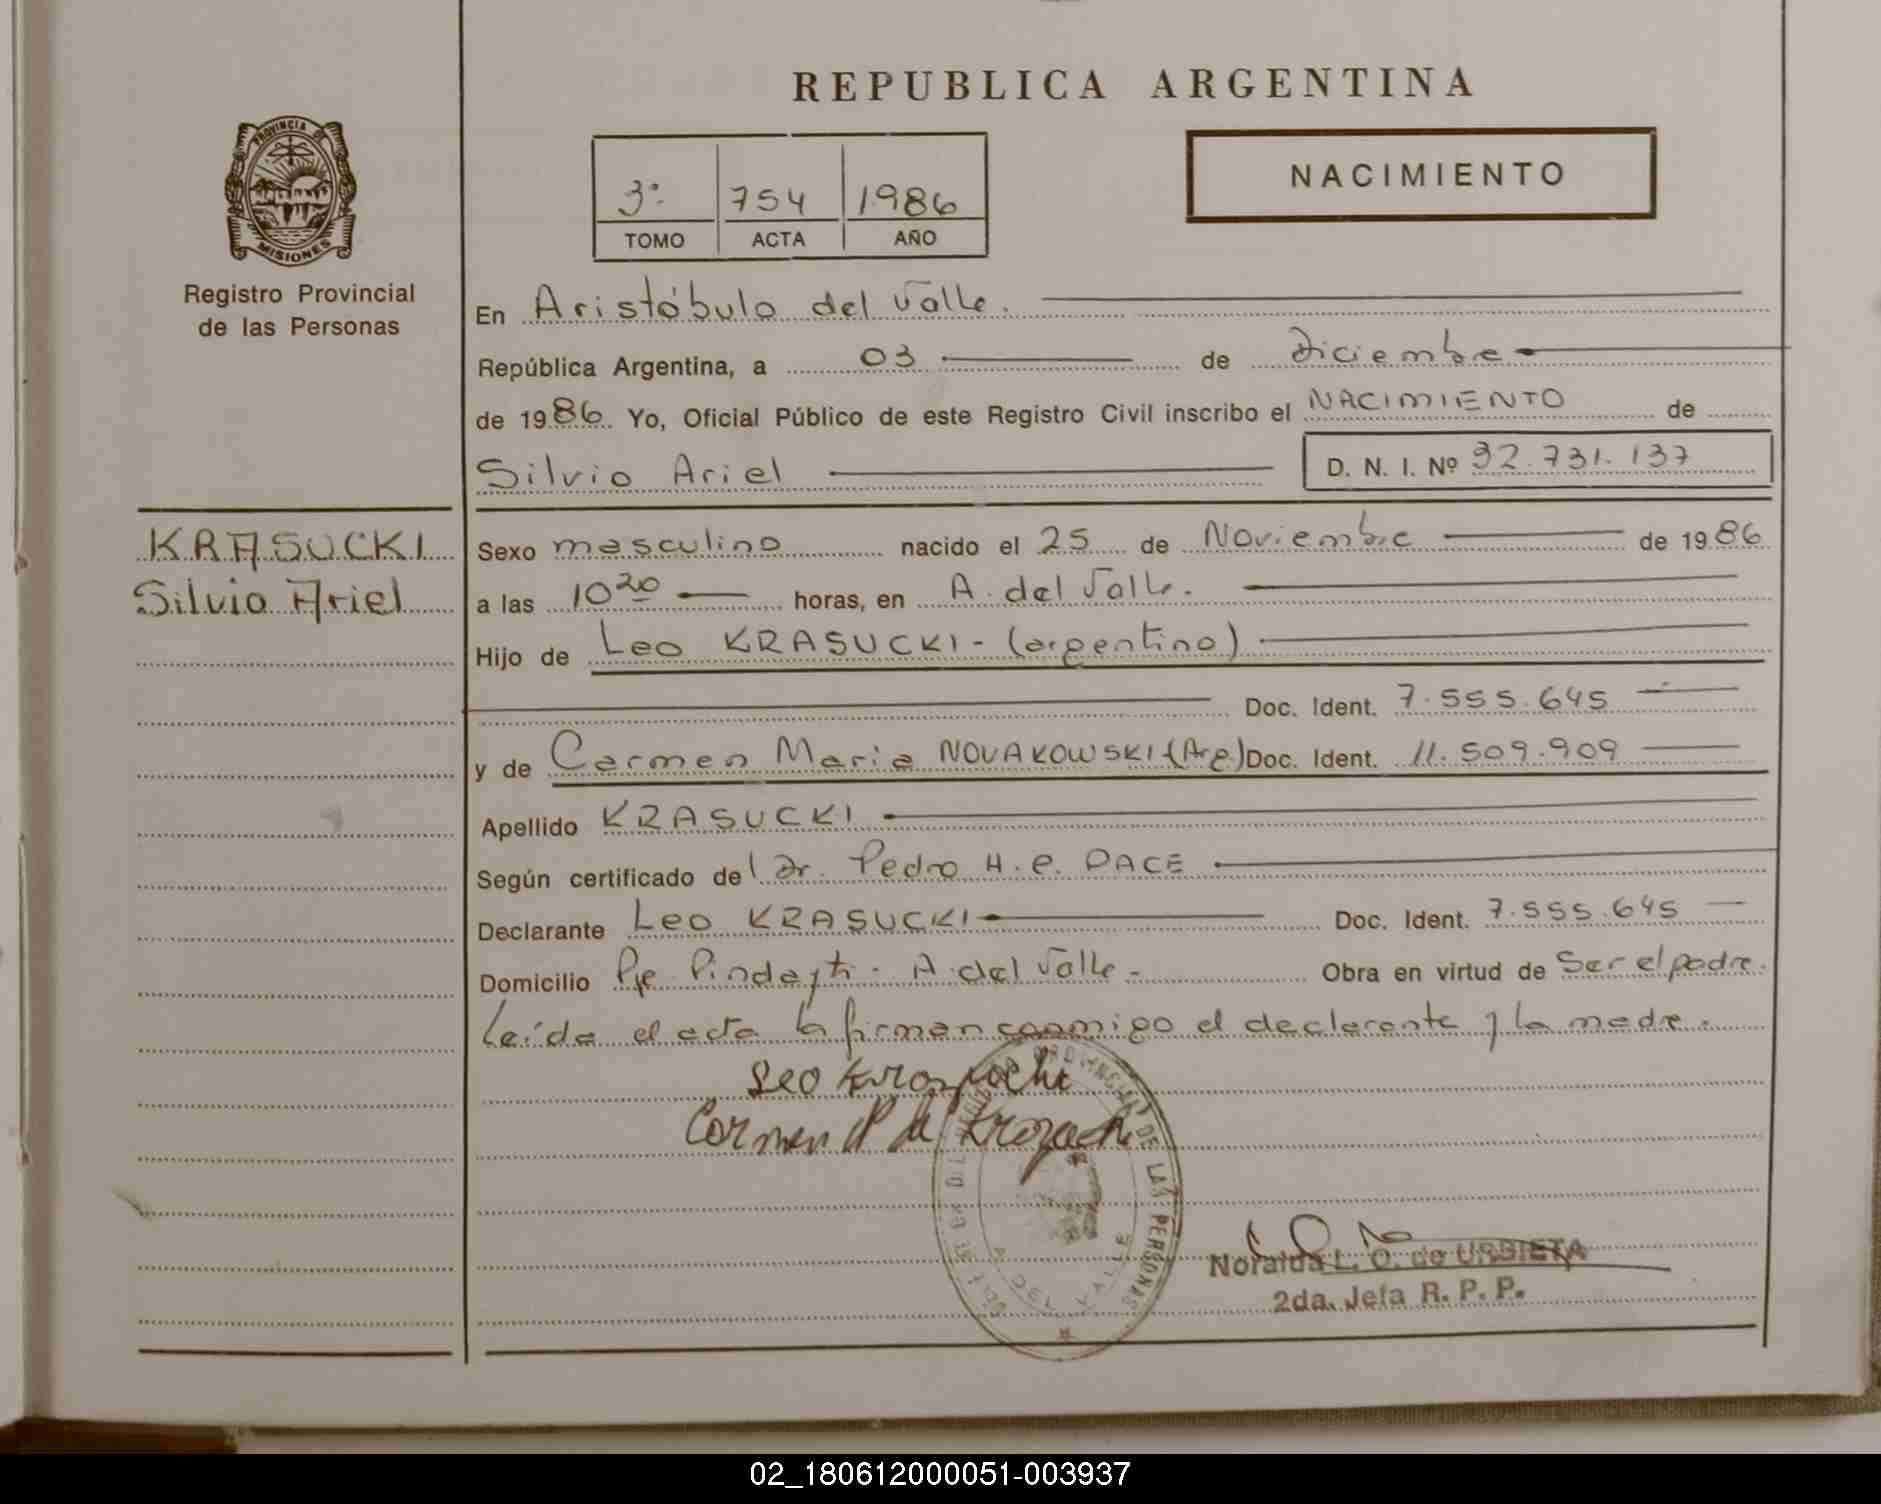 REPUBLICA ARGENTINA
PROVINCIA DE
MISIONES
Registro Provincial
de las Personas
3º 754 1986
TOMO ACTA AÑO
NACIMIENTO
En Aristóbulo del Valle.
República Argentina, a 03 de Diciembre
de 1986 Yo, Oficial Público de este Registro Civil inscribo el NACIMIENTO de
Silvio Ariel D. N. I. Nº 32.731.137
KRASUCKI
Silvio Ariel
Sexo masculino nacido el 25 de Noviembre de 1986
a las 10 20 horas, en A. del Valle.
Hijo de Leo KRASUCKI - (argentino)
Doc. Ident. 7.555.645
y de Carmen Maria NOVAKOWSKI (Arg.) Doc. Ident. 11.509.909
Apellido KRASUCKI
Según certificado del Dr. Pedro H. e. DACE
Declarante Leo KRASUCKI Doc. Ident. 7.555.645
Domicilio Pje. A. del Valle - Obra en virtud de Ser el padre.
Leída el acta la firman conmigo el declarante y la madre.
Leo
Carmen
PROVINCIAL DE LAS PERSONAS
A DEL VALLE
Noraida L. O. de URBIETA
2da. Jefa R. P. P.
02_180612000051-003937